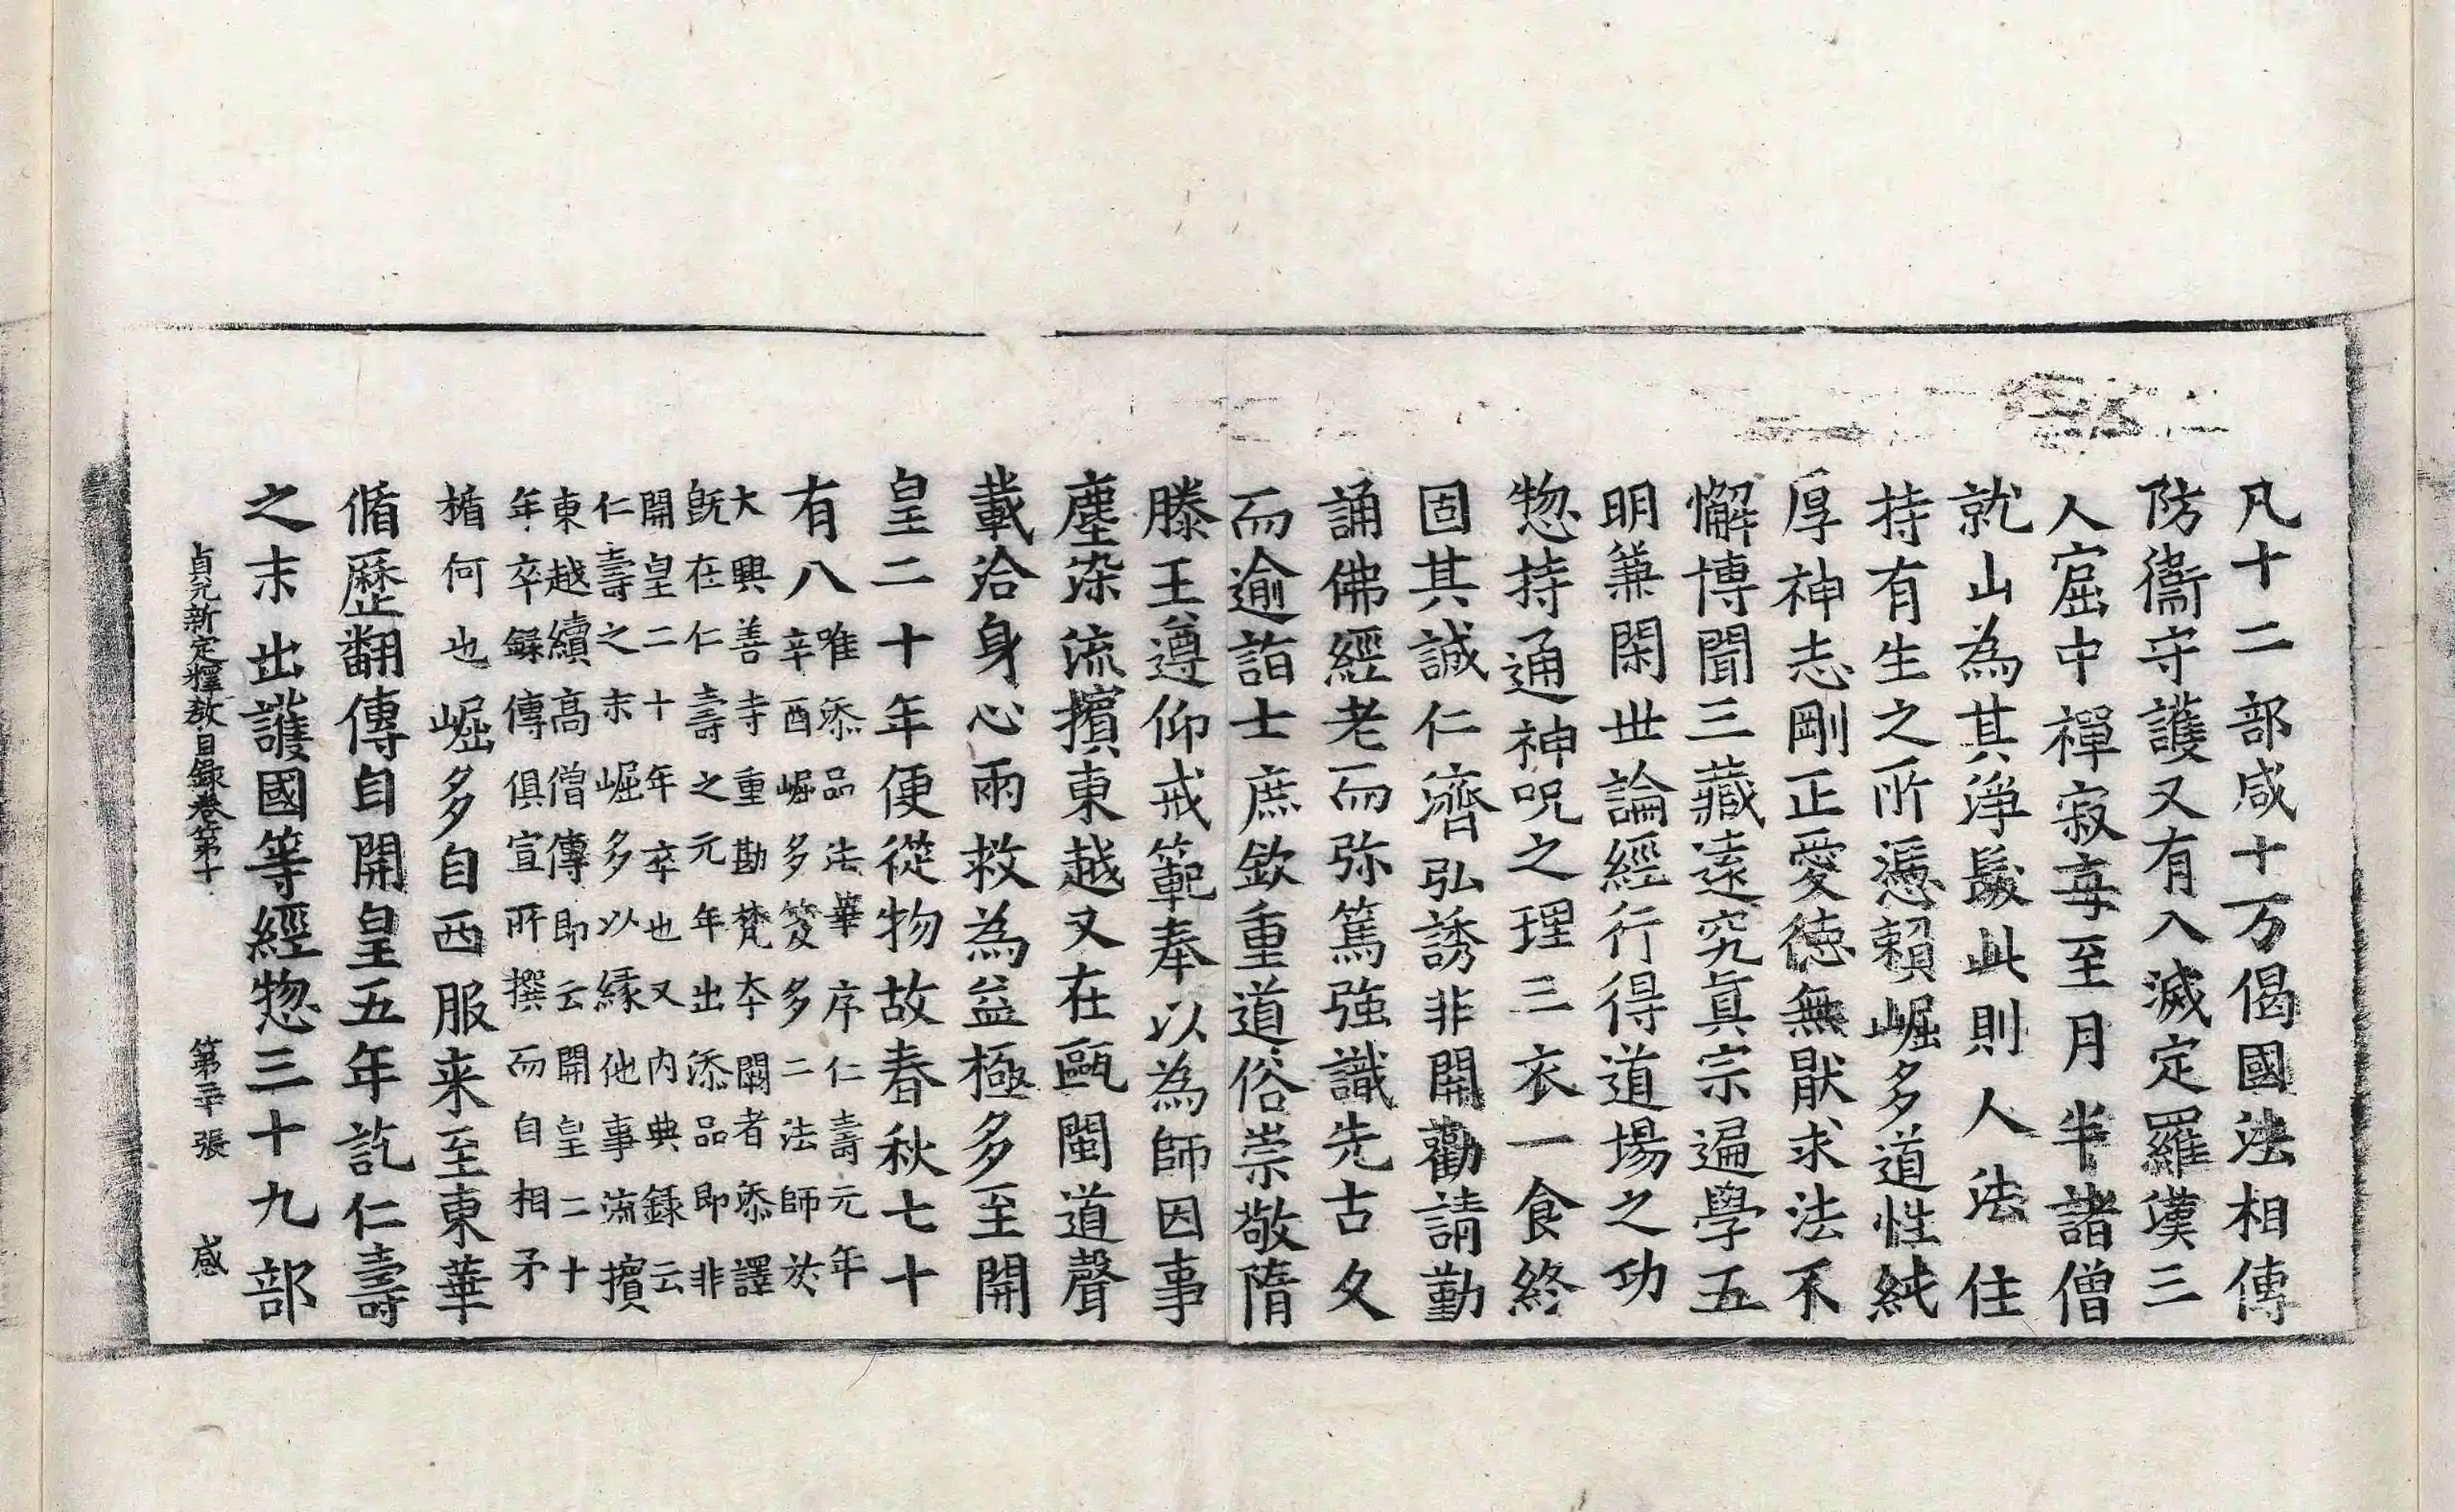 凡十二部咸十万偈國法相傳
防衛守護又有入滅定羅漢三
人窟中禪寂每至月半諸僧
就山為其淨髮此則人法住
持有生之所憑賴崛多道性純
厚神志剛正愛德無猒求法不
懈博聞三藏遠究真宗遍學五
明兼閑世論經行得道場之功
惣持通神呪之理三衣一食終
固其誠仁濟弘誘非關勸請勤
誦佛經老而弥篤強識先古久
而逾詣士庶欽重道俗崇敬隋
滕王遵仰戒範奉以為師因事
塵染流擯東越又在甌閩道聲
載洽身心兩救為益極多至開
皇二十年便從物故春秋七十
有八
唯添品法華序仁壽元年
辛酉崛多笈多二法師於
大興善寺重勘梵本闕者添譯
旣在仁壽之元年出添品即非
開皇二十年卒也又內典錄云
仁壽之末崛多以緣他事流擯
東越續高僧傳即云開皇二十
年卒錄傳俱宣所撰而自相矛
楯何也
崛多自西服来至東華
循歷翻傳自開皇五年訖仁壽
之末出護國等經惣三十九部
貞元新定釋教目錄卷第十 第二十張 感